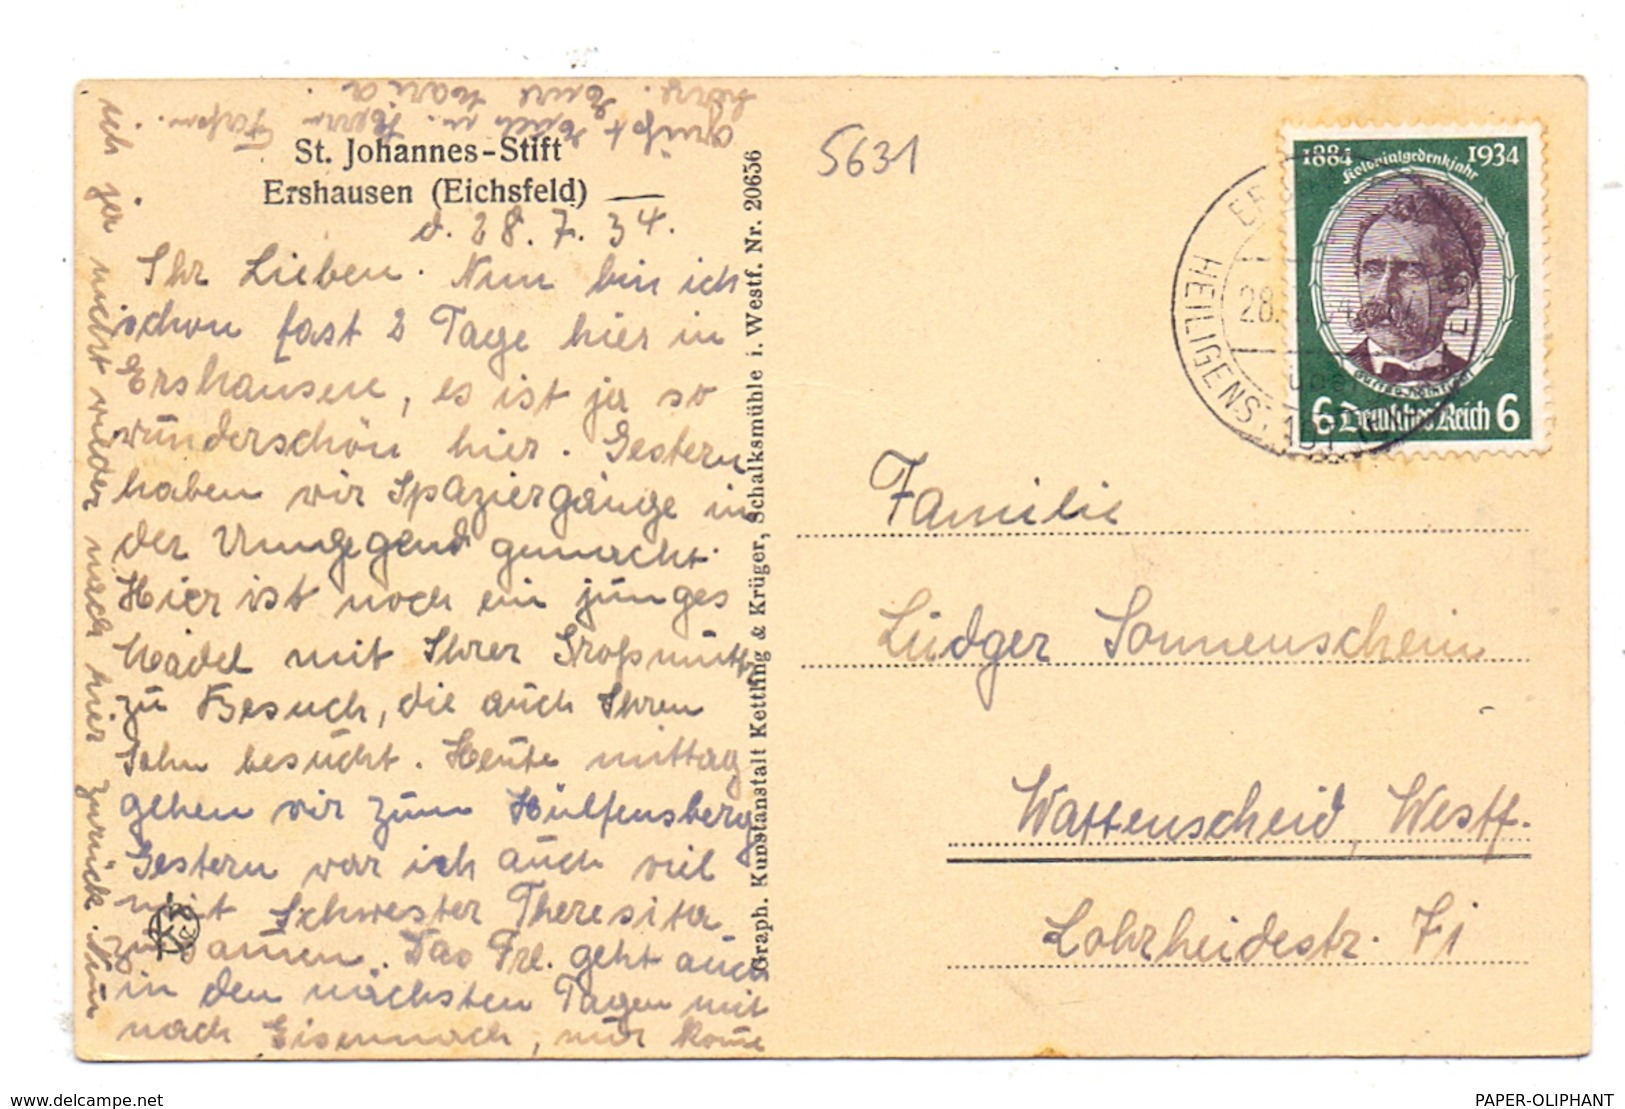 St. Johannes-Stift
Ershausen (Eichsfeld)
d. 28. 7. 34.
Ihr Lieben. Nun bin ich
schon fast 2 Tage hier in
Ershausen, es ist ja so
wunderschön hier. Gestern
haben wir Spaziergänge in
der Umgegend gemacht.
Hier ist noch ein junges
Mädel mit Ihrer Großmutter
zu Besuch, die auch Ihren
Sohn besucht. Heute mittag
gehen wir zum Hülfensberg
Gestern war ich auch viel
mit Schwester Theresita
zusamen. Das Frl. geht auch
in den nächsten Tagen mit
nach Eisennach, nur kome
ich ja nicht wieder nach hier zurück. Nun
grüßt Euch u. Herrn
herz. Eure Maria
Graph. Kunstanstalt Kettling & Krüger, Schalksmühle i. Westf. Nr. 20656
5631
1884 1934
Kolonialgedenkjahr
6 Deutsches Reich 6
HEILIGENSTADT
28.
Familie
Ludger Sonnenschein
Wattenscheid, Westf.
Lohrheidestr. 71
www.delcampe.net
PAPER-OLIPHANT